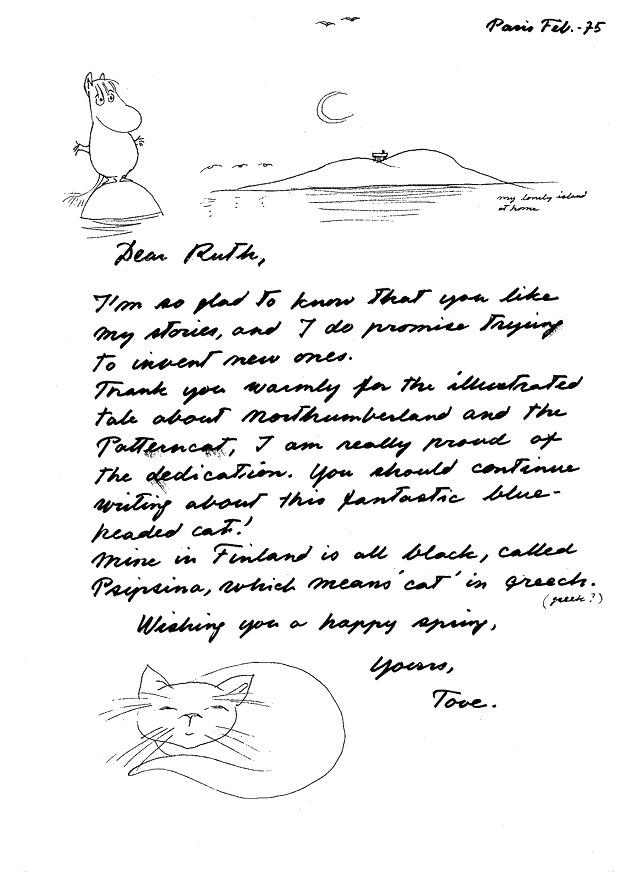 Paris Feb.-75
my lonely island
at home
Dear Ruth,
I'm so glad to know that you like
my stories, and I do promise trying
to invent new ones.
Thank you warmly for the illustrated
tale about Northumberland and the
Patterncat, I am really proud of
the dedication. You should continue
writing about this fantastic blue-
headed cat!
Mine in Finland is all black, called
Psipsina, which means 'cat' in greech.
(greek?)
Wishing you a happy spring,
Yours,
Tove.